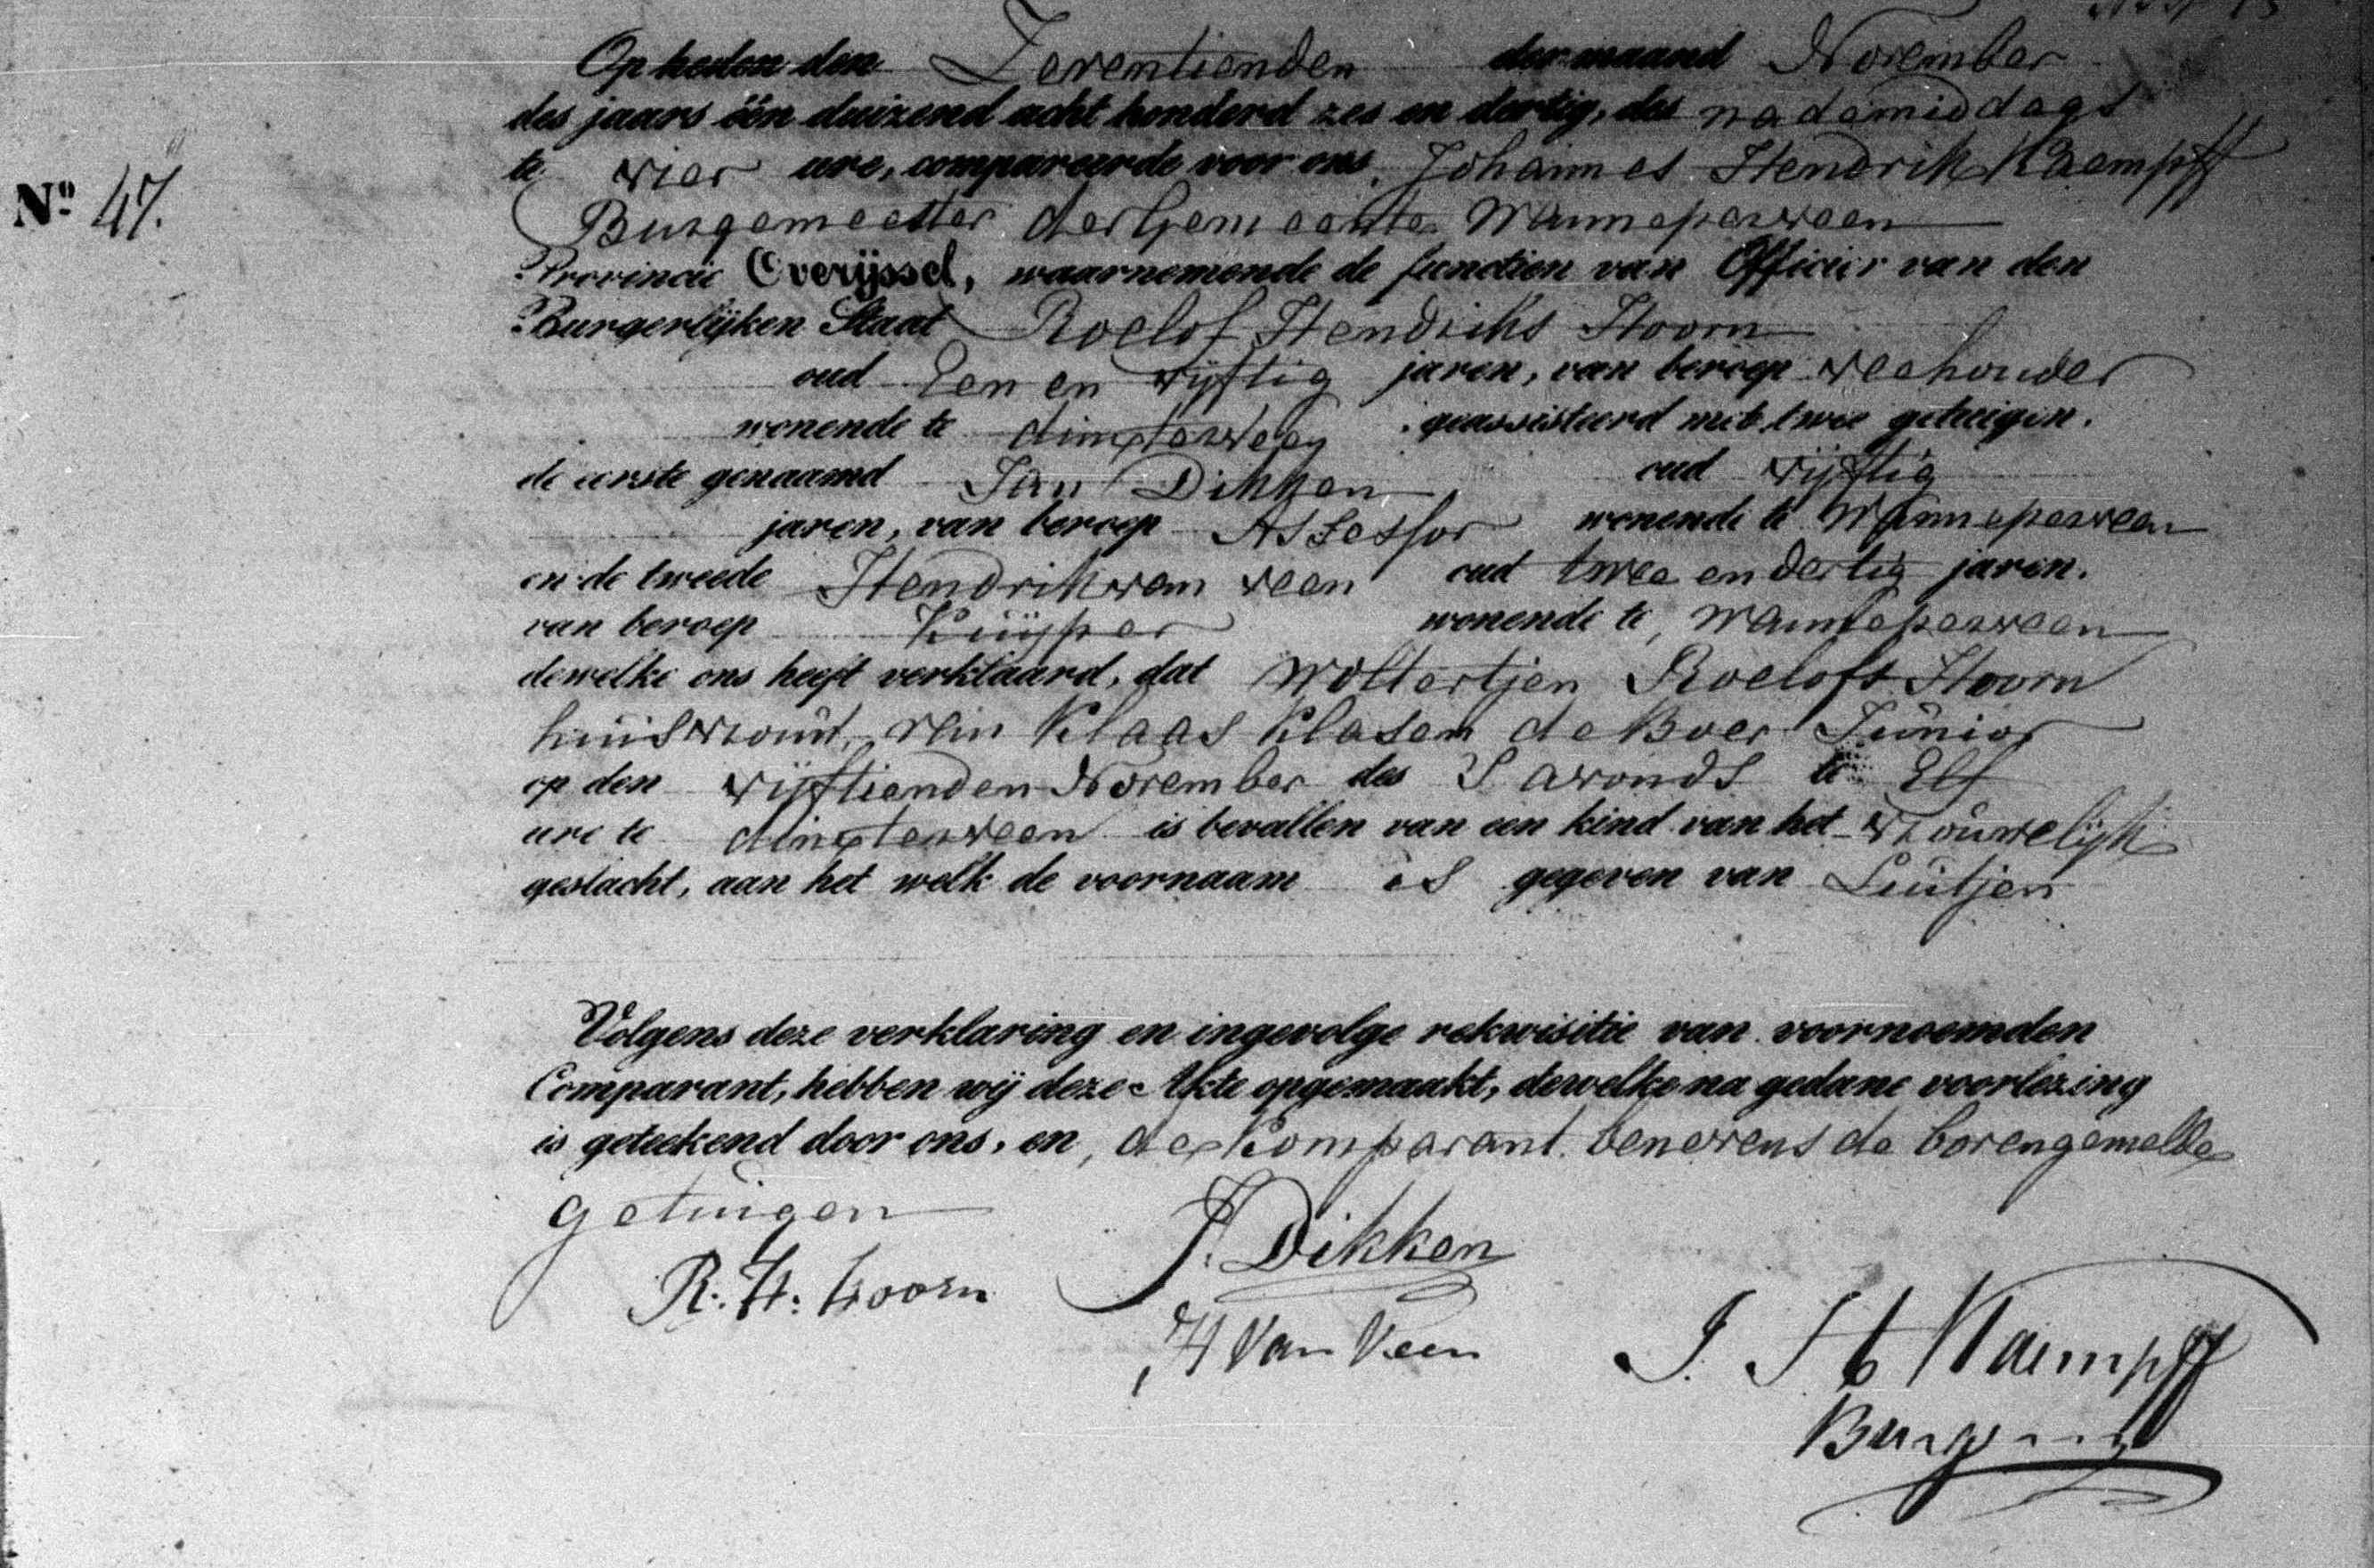 Op heden den Zeventienden der maand November
des jaars één duizend acht honderd zes en dertig, des nademiddags
te vier ure, compareerde voor ons, Johannes Hendrik Kaempff
Nº 47.
Burgemeester der Gemeente Wanneperveen
Provincie Overijssel, waarnemende de functien van Officier van den
Burgerlijken Staat Roelof Hendriks Hoorn
oud Een en vijftig jaren, van beroep veehouder
wonende te dinxterveen geassisteerd met twee getuigen.
de eerste genaamd Jan Dikken oud vijftig
jaren, van beroep Assessor wonende te Wanneperveen
en de tweede Hendrik van veen oud twee en dertig jaren.
van beroep Kuijper wonende te, Wanneperveen
dewelke ons heeft verklaard, dat Woltertjen Roelofs Hoorn
huisvrouw van Klaas Klasen de Boer Junior
op den vijftienden November des S avonds te Elf
ure te dinxterveen is bevallen van een kind van het vrouwelijk
geslacht, aan het welk de voornaam is gegeven van Luitjen
Volgens deze verklaring en ingevolge rekwisitie van voornoemden
Comparant, hebben wij deze Akte opgemaakt, dewelke na gedane voorlezing
is geteekend door ons, en, de Komparant benevens de bovengemelde
getuigen
J. Dikken
R. H. hoorn
H Van Veen
J. H Kaempff